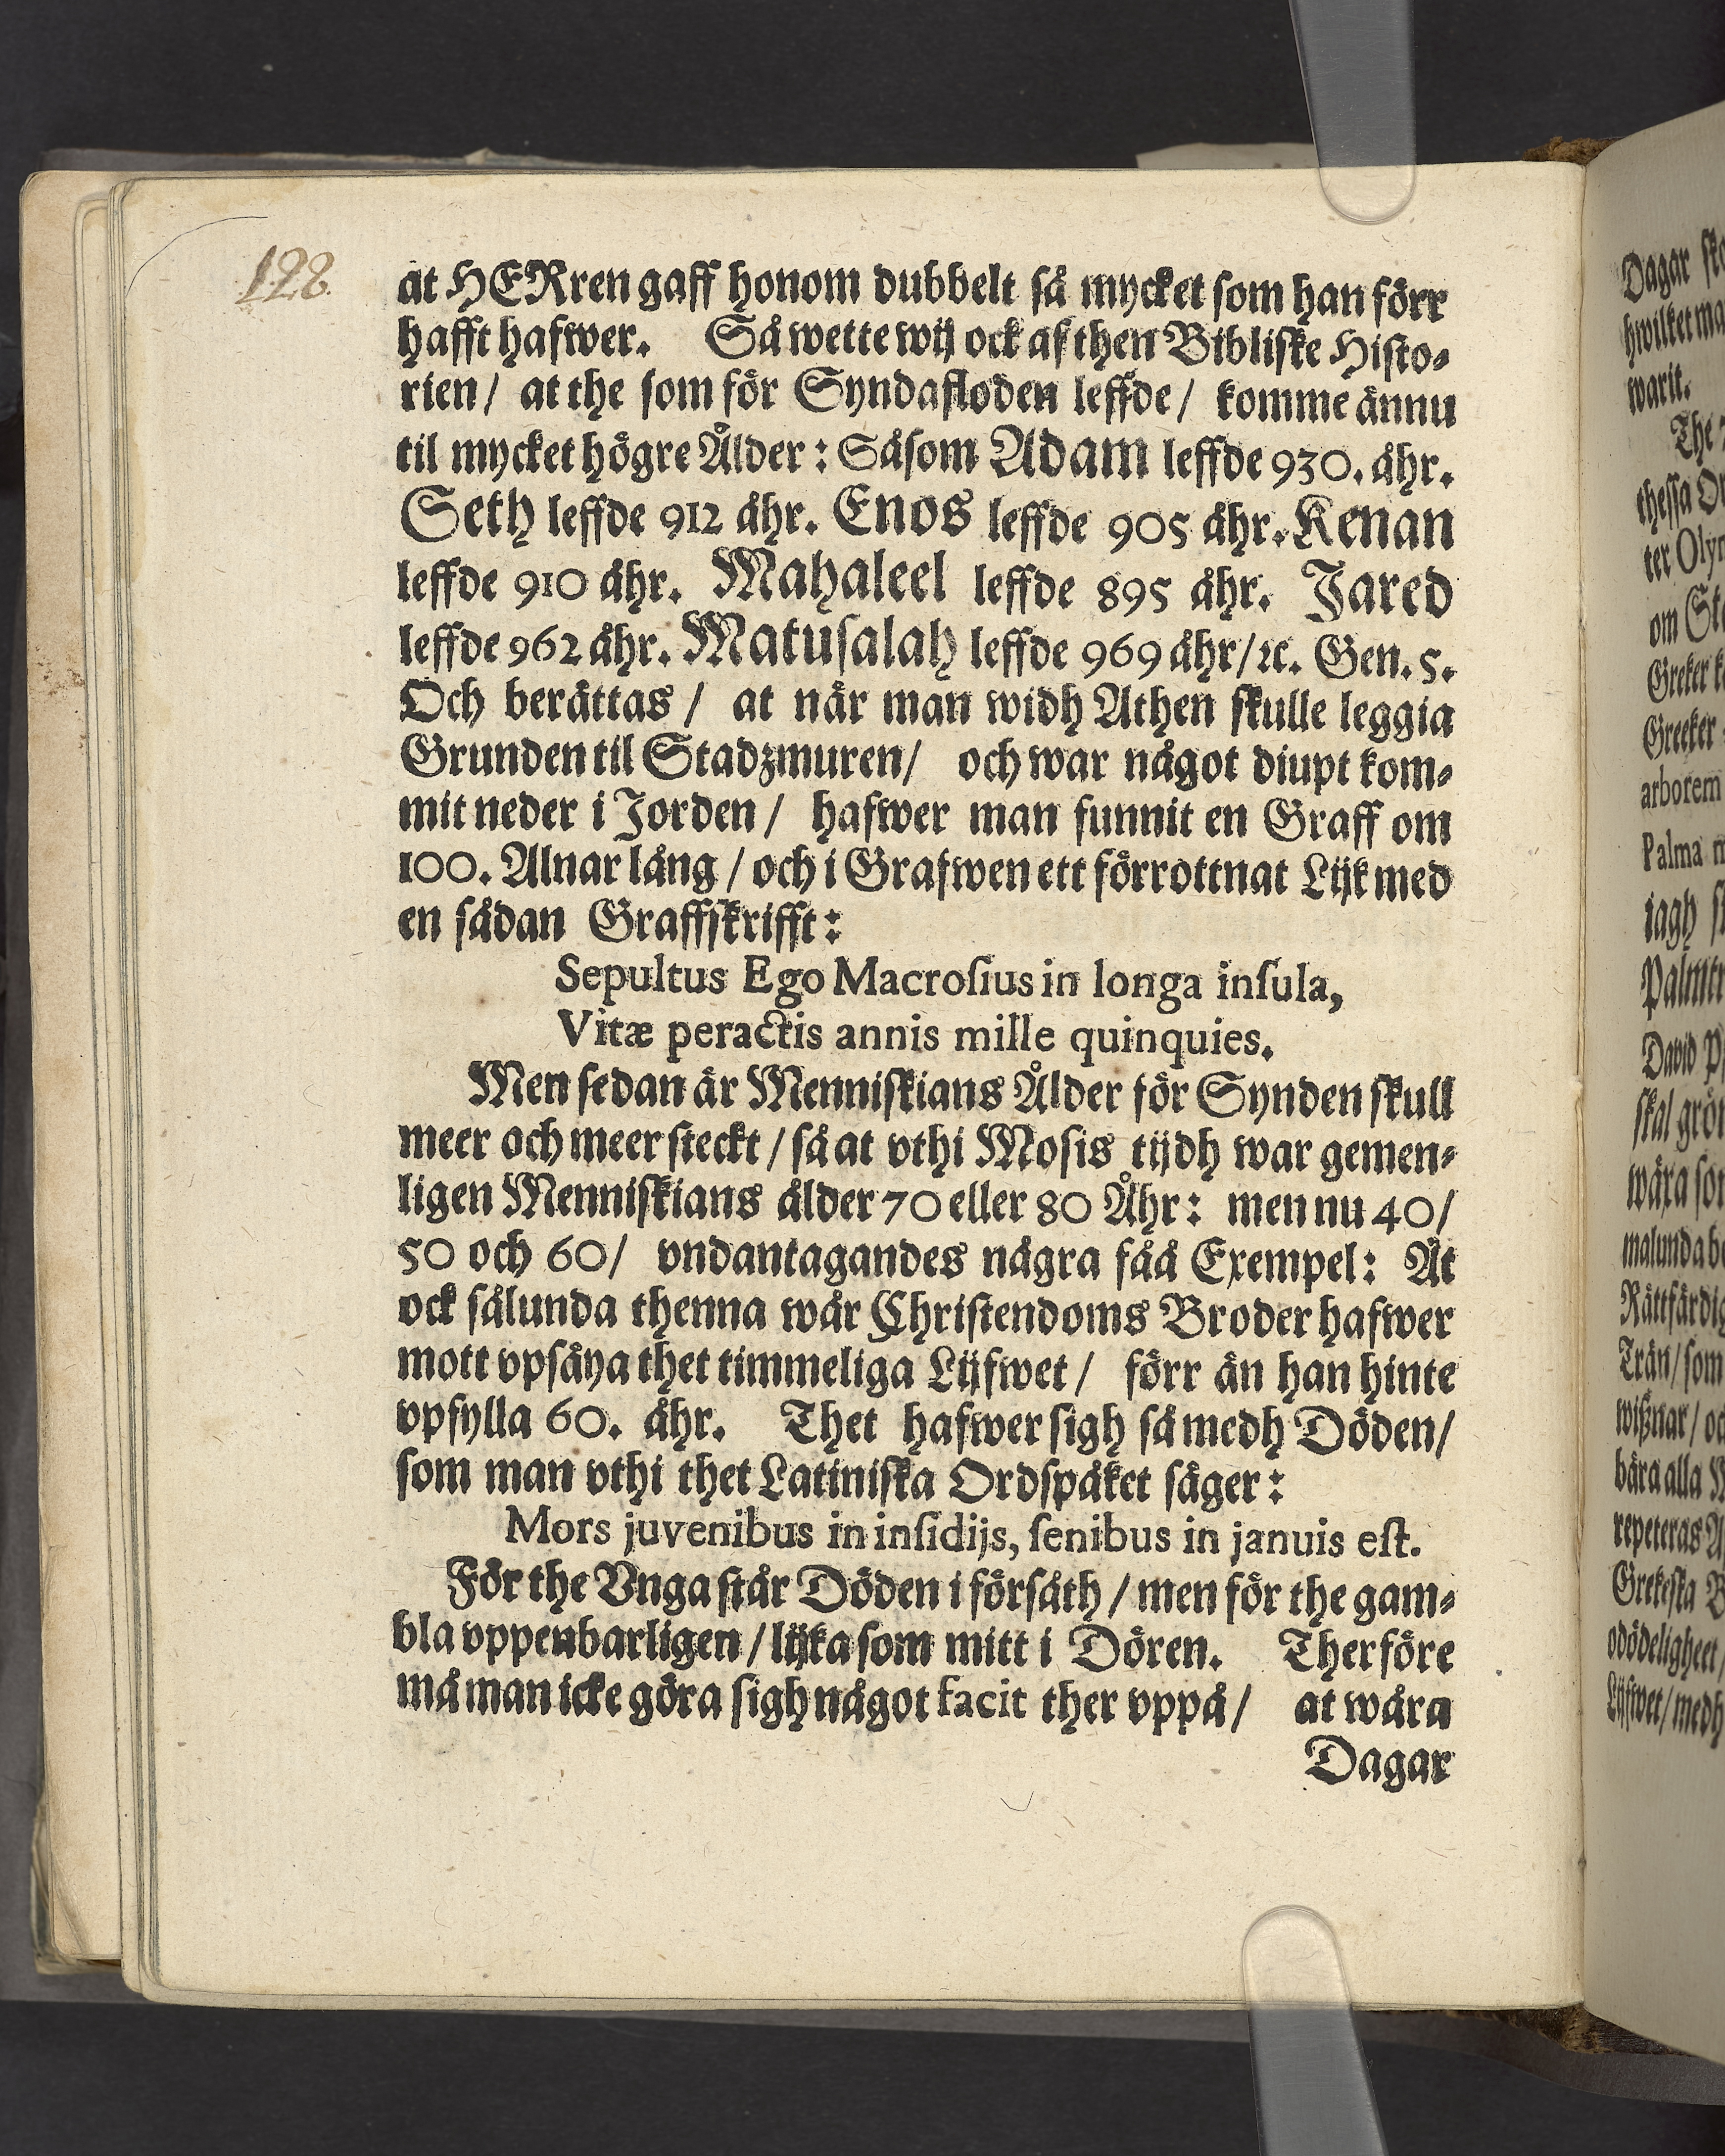 122
at HERren gaff honom dubbelt så mycket som han förr
hafft hafwer. Så wette wij ock af then Bibliske Histo-
rien / at the som för Syndafloden leffde / komme ännu
til mycket högre Ålder: Såsom Adam leffde 930. åhr.
Seth leffde 912 åhr. Enos leffde 905 åhr. Kenan
leffde 910 åhr. Mahaleel leffde 895 åhr. Jared
leffde 962 åhr. Matusalah leffde 969 åhr / ꝛc. Gen. 5.
Och berättas / at när man widh Athen skulle leggia
Grunden til Stadzmuren / och war något diupt kom-
mit neder i Jorden / hafwer man funnit en Graff om
100. Alnar lång / och i Grafwen ett förrottnat Lijk med
en sådan Graffskrifft:
Sepultus Ego Macroſius in longa inſula,
Vitæ peractis annis mille quinquies.
Men sedan är Menniskians Ålder för Synden skull
meer och meer steckt / så at vthi Mosis tijdh war gemen-
ligen Menniskians ålder 70 eller 80 Åhr: men nu 40 /
50 och 60 / vndantagandes några fåå Exempel: At
ock sålunda thenna wår Christendoms Broder hafwer
mott vpsäya thet timmeliga Lijfwet / förr än han hinte
vpfylla 60. åhr. Thet hafwer sigh så medh Döden /
som man vthi thet Latiniska Ordspåket säger:
Mors juvenibus in inſidijs, ſenibus in januis eſt.
För the Vnga står Döden i försåth / men för the gam-
bla vppenbarligen / lijka som mitt i Dören. Therföre
må man icke göra sigh något facit ther vppå / at wåra
Dagar
Dagar
hwilket
warit.
The
thessa
ter
om
Greker
Greeker
arborem
Palma
iagh
David
skal
wära
Trän / som
bära alla
repeteras
Grekeska
odödeligheet /
Lijfwet / medh